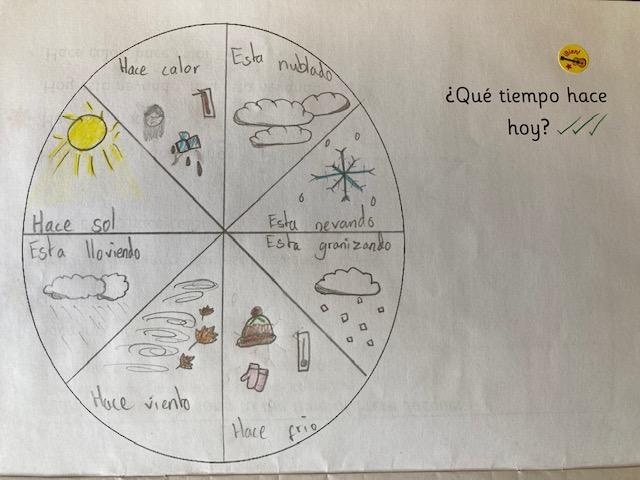 Hace calor
Esta nublado
Hace sol
Esta nevando
Esta lloviendo
Esta granizando
Hace viento
Hace frio
¡Bien!
¿Qué tiempo hace
hoy?